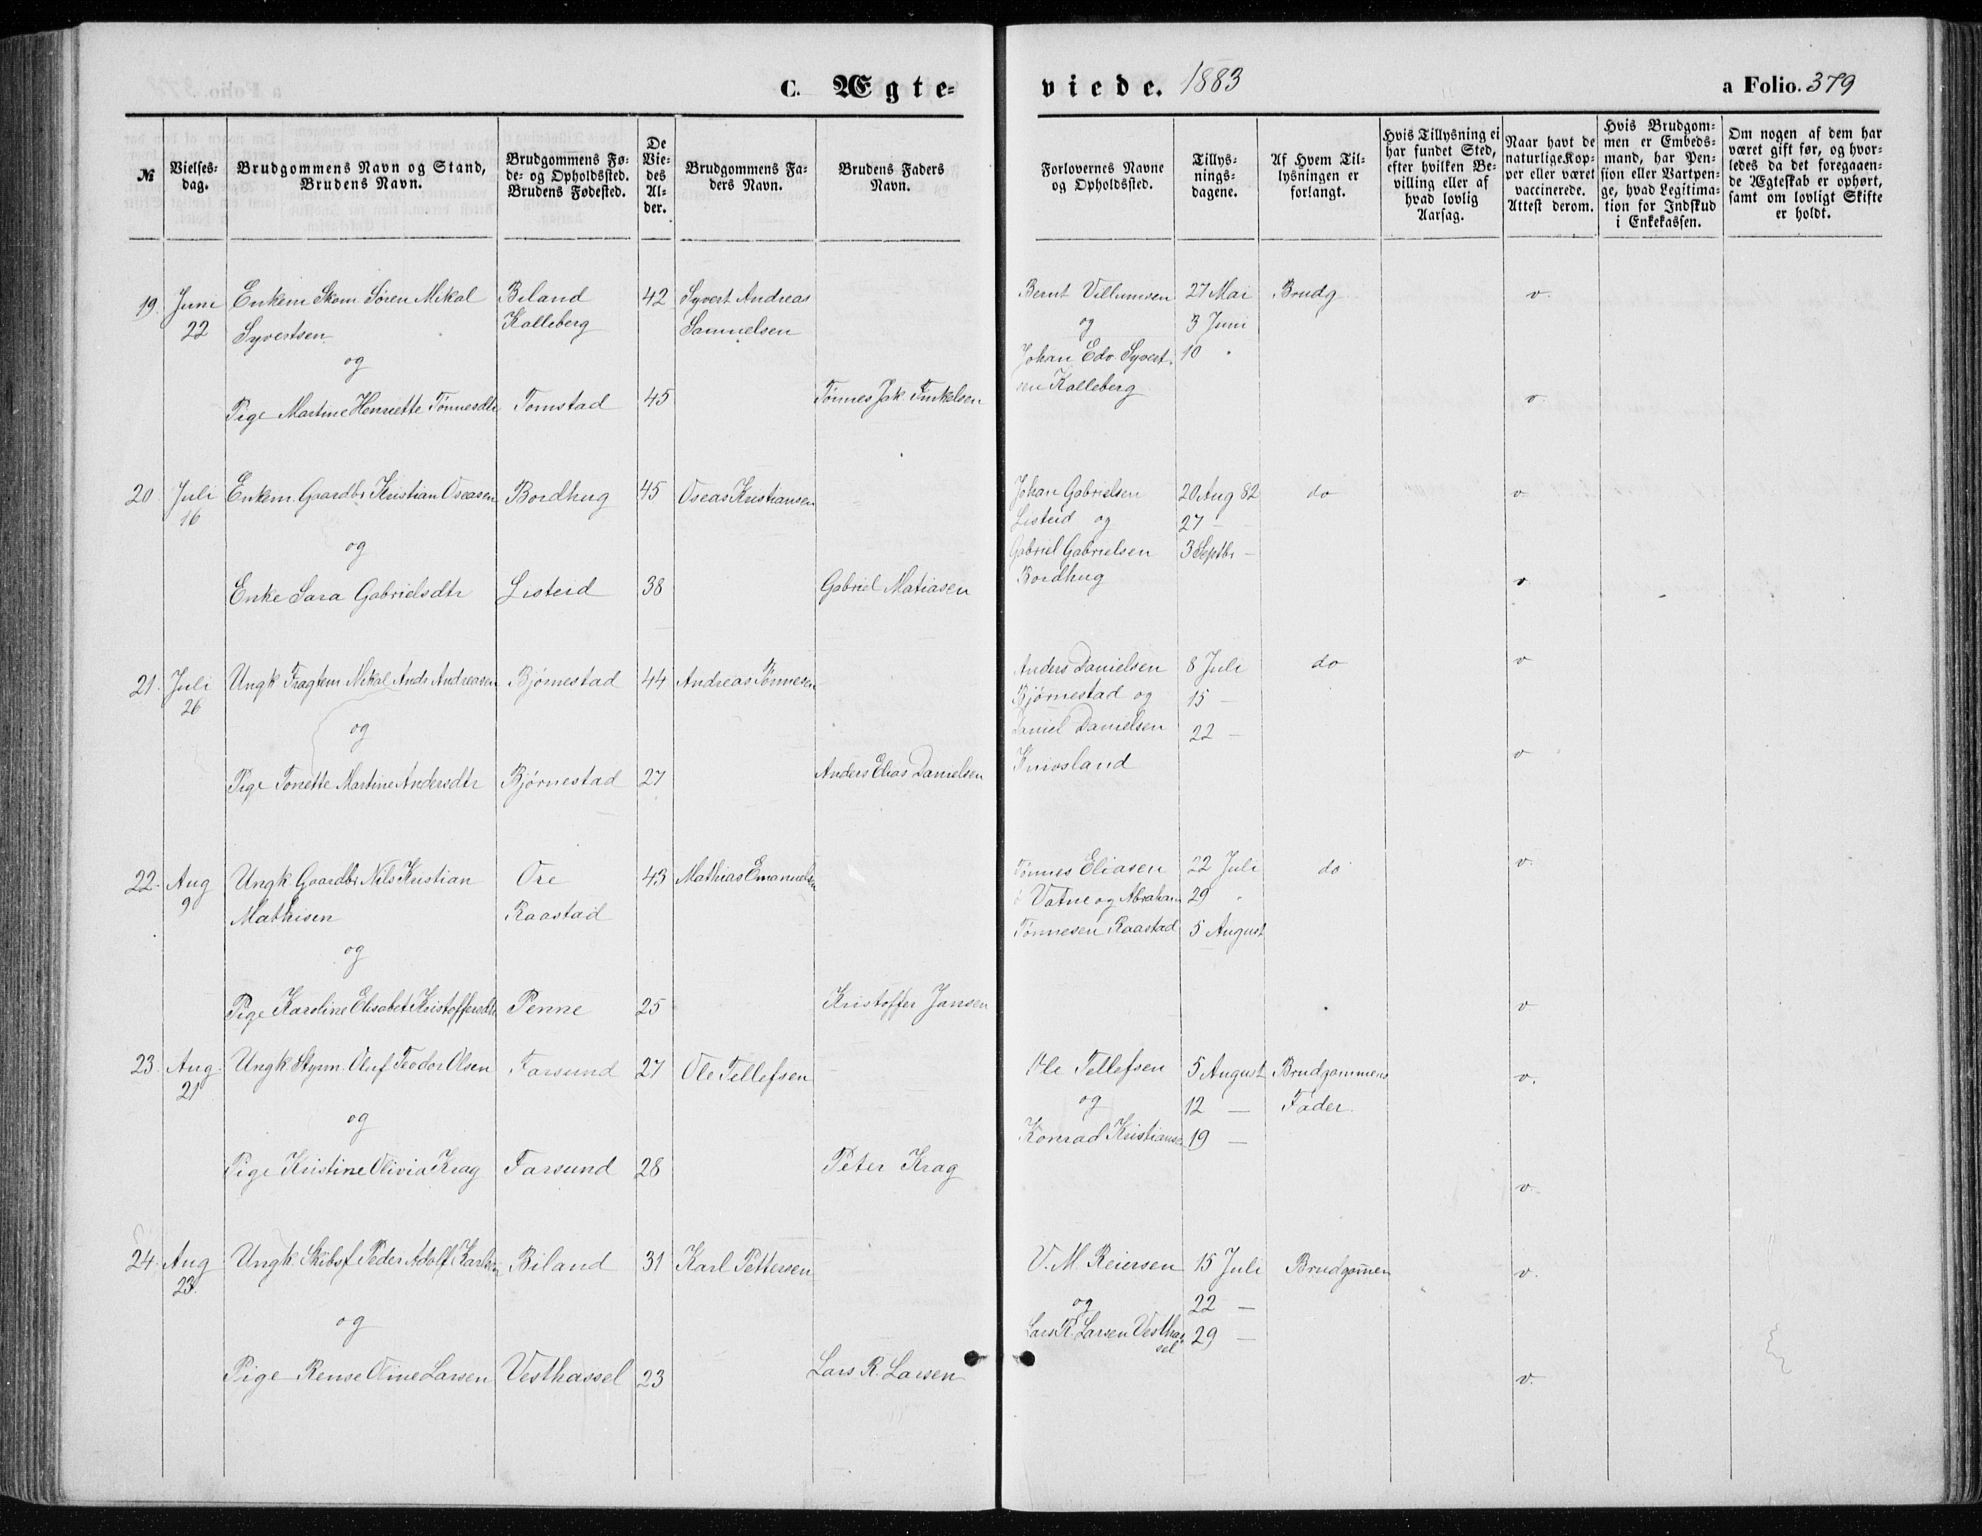 C. Ægte-
viede. 1883
a Folio. 379
№
Vielses-
dag.
Brudgommens Navn og Stand,
Brudens Navn.
Brudgommens Fø-
de- og Opholdssted.
Brudens Fødested.
De
Vie-
des
Al-
der.
Brudgommens Fa-
ders Navn.
Brudens Faders
Navn.
Forlovernes Navne
og Opholdssted.
Tillys-
nings-
dagene.
Af Hvem Til-
lysningen er
forlangt.
Hvis Tillysning ei
har fundet Sted,
efter hvilken Be-
villing eller af
hvad lovlig
Aarsag.
Naar havt de
naturlige Kop-
per eller været
vaccinerede.
Attest derom.
Hvis Brudgom-
men er Embeds-
mand, har Pen-
sion eller Vartpen-
ge, hvad Legitima-
tion for Indskud
i Enkekassen.
Om nogen af dem har
været gift før, og hvor-
ledes da det foregaaen-
de Ægteskab er ophørt,
samt om lovligt Skifte
er holdt.
19. Juni Enkem Skom Søren Mikal Biland 42 Syvert Andreas Bernt Villumsen 27 Mai Brudg. v.
22 Syvertsen Kalleberg Samuelsen og 3 Juni
og Johan Edv. Syvert- 10 "
sen Kalleberg
Pige Martine Henriette Tønnesdtr Tomstad 45 Tønnes Jak. Finkelsen v.
20 Juli Enkem. Gaardbr Kristian Oseasen Bordhug 45 Oseas Kristiansen Johan Gabrielsen 20 Aug 82 do v
16 Listeid og 27 —
og Gabriel Gabrielsen 3 Septbr —
Bordhug
Enke Sara Gabrielsdtr Listeid 38 Gabriel Matiasen v
21. Juli Ungk Fragtem Mikal Andr Andreasen Bjørnestad 44 Andreas Tønnesen Anders Danielsen 8 Juli do v
26 Bjørnestad og 15 —
og Daniel Danielsen 22 —
Knivsland
Pige Tonette Martine Andersdtr Bjørnestad 27 Anders Elias Danielsen v
22. Aug Ungk Gaardbr Nils Kristian Ore 43 Mathias Emanuelsen Tønnes Eliasen 22 Juli do v.
9 Mathisen Raastad Vatne og Abraham 29 "
og Tønnesen Raastad 5 August
Pige Karoline Elisabet Kristoffersdtr Penne 25 Kristoffer Jansen v
23. Aug. Ungk Styrm. Oluf Teodor Olsen Farsund 27 Ole Tellefsen Ole Tellefsen 5 August Brudgommens v.
21 og 12 — Fader.
og Konrad Kristiansen 19 —
Pige Kristine Olivia Krag Farsund 28 Peter Krag v.
24. Aug Ungk. Skibsf Peder Adolf Karlsen Biland 31 Karl Pettersen V. M. Reiersen 15 Juli Brudgommen v.
23. og 22 —
og Lars R. Larsen Vesthas 29 —
sel
Pige Rense Oline Larsen Vesthassel 23 Lars R. Larsen v.